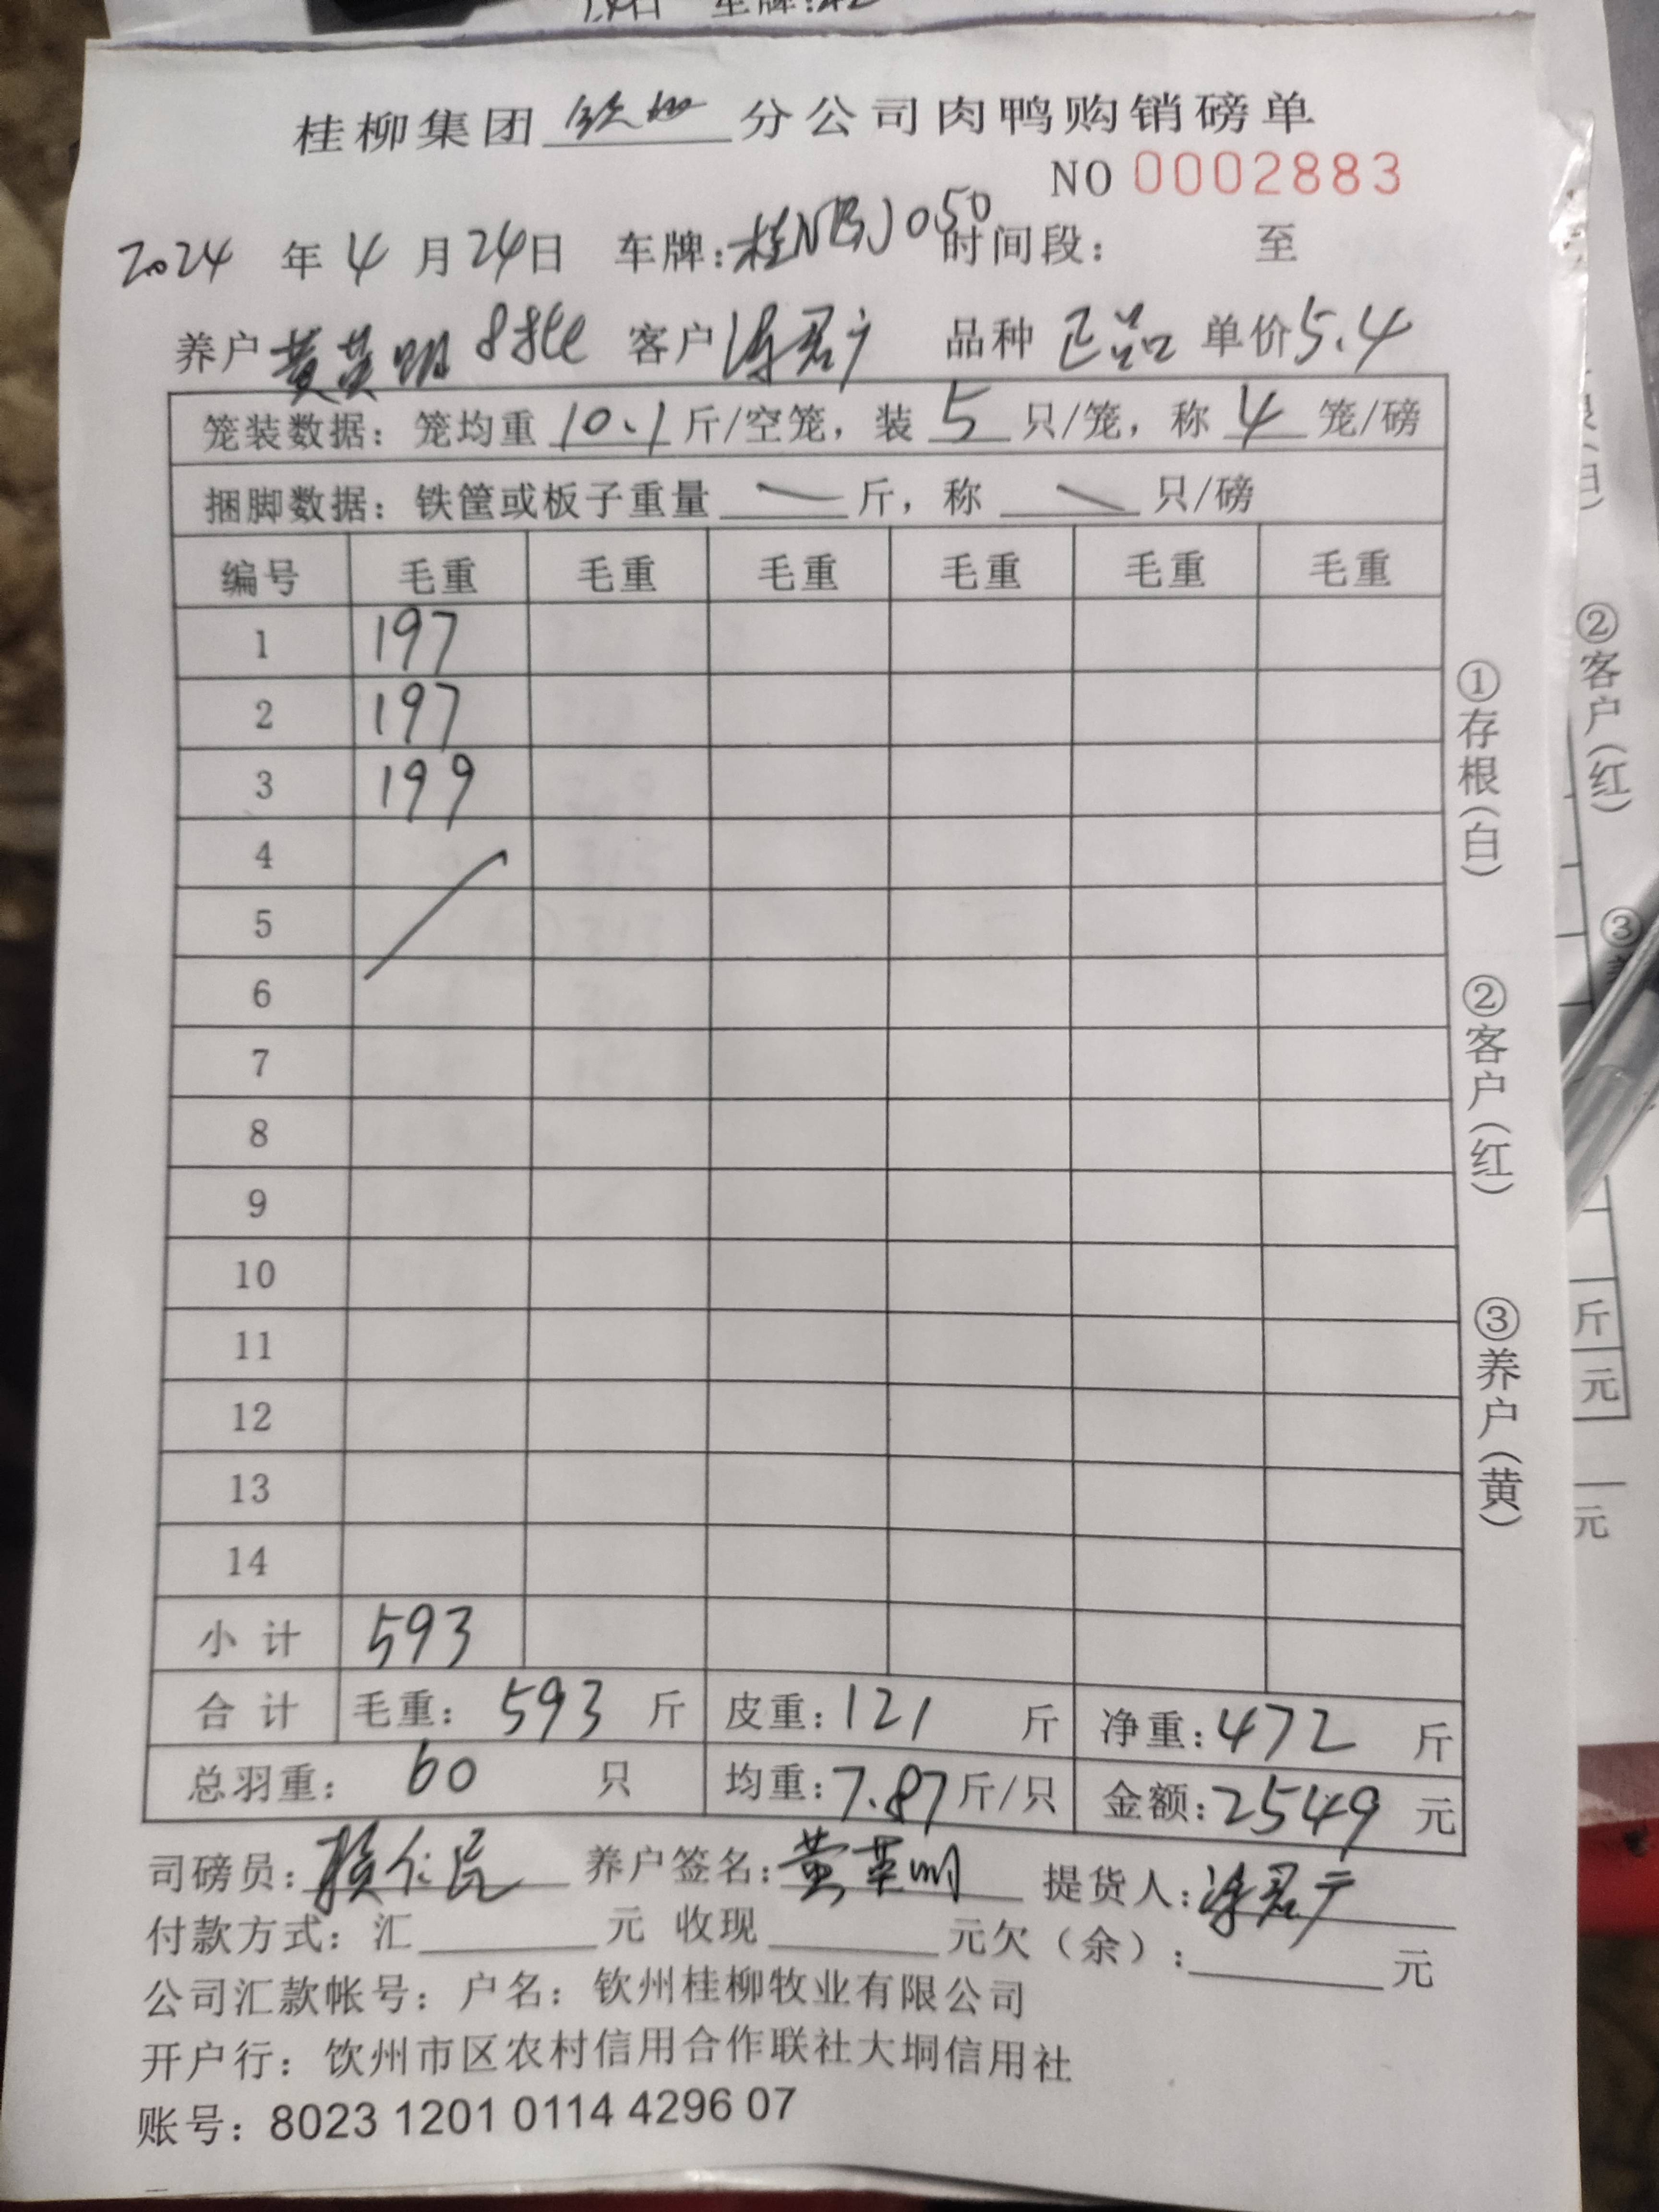 桂柳集团 钦州 分公司肉鸭购销磅单
NO 0002883
2024 年 4 月 24日 车牌:桂NBJ050 时间段: 至
养户 黄英明 8批 客户 君广 品种 正品 单价5.4
笼装数据: 笼均重 10.1 斤/空笼, 装 5 只/笼, 称 4 笼/磅
捆脚数据: 铁筐或板子重量 斤, 称 只/磅
编号 毛重 毛重 毛重 毛重 毛重 毛重
1 197
2 197
3 199
4
5
6
7
8
9
10
11
12
13
14
小计 593
合计 毛重: 593 斤 皮重:121 斤 净重:472 斤
总羽重: 60 只 均重:7.87斤/只 金额:2549 元
司磅员: 养户签名:黄英明 提货人: 君广
付款方式: 汇 元 收现 元欠(余): 元
公司汇款帐号: 户名: 钦州桂柳牧业有限公司
开户行: 饮州市区农村信用合作联社大垌信用社
账号: 8023 1201 0114 4296 07
①存根(白)
②客户(红)
③养户(黄)
②客户(红)
③
斤
元
元